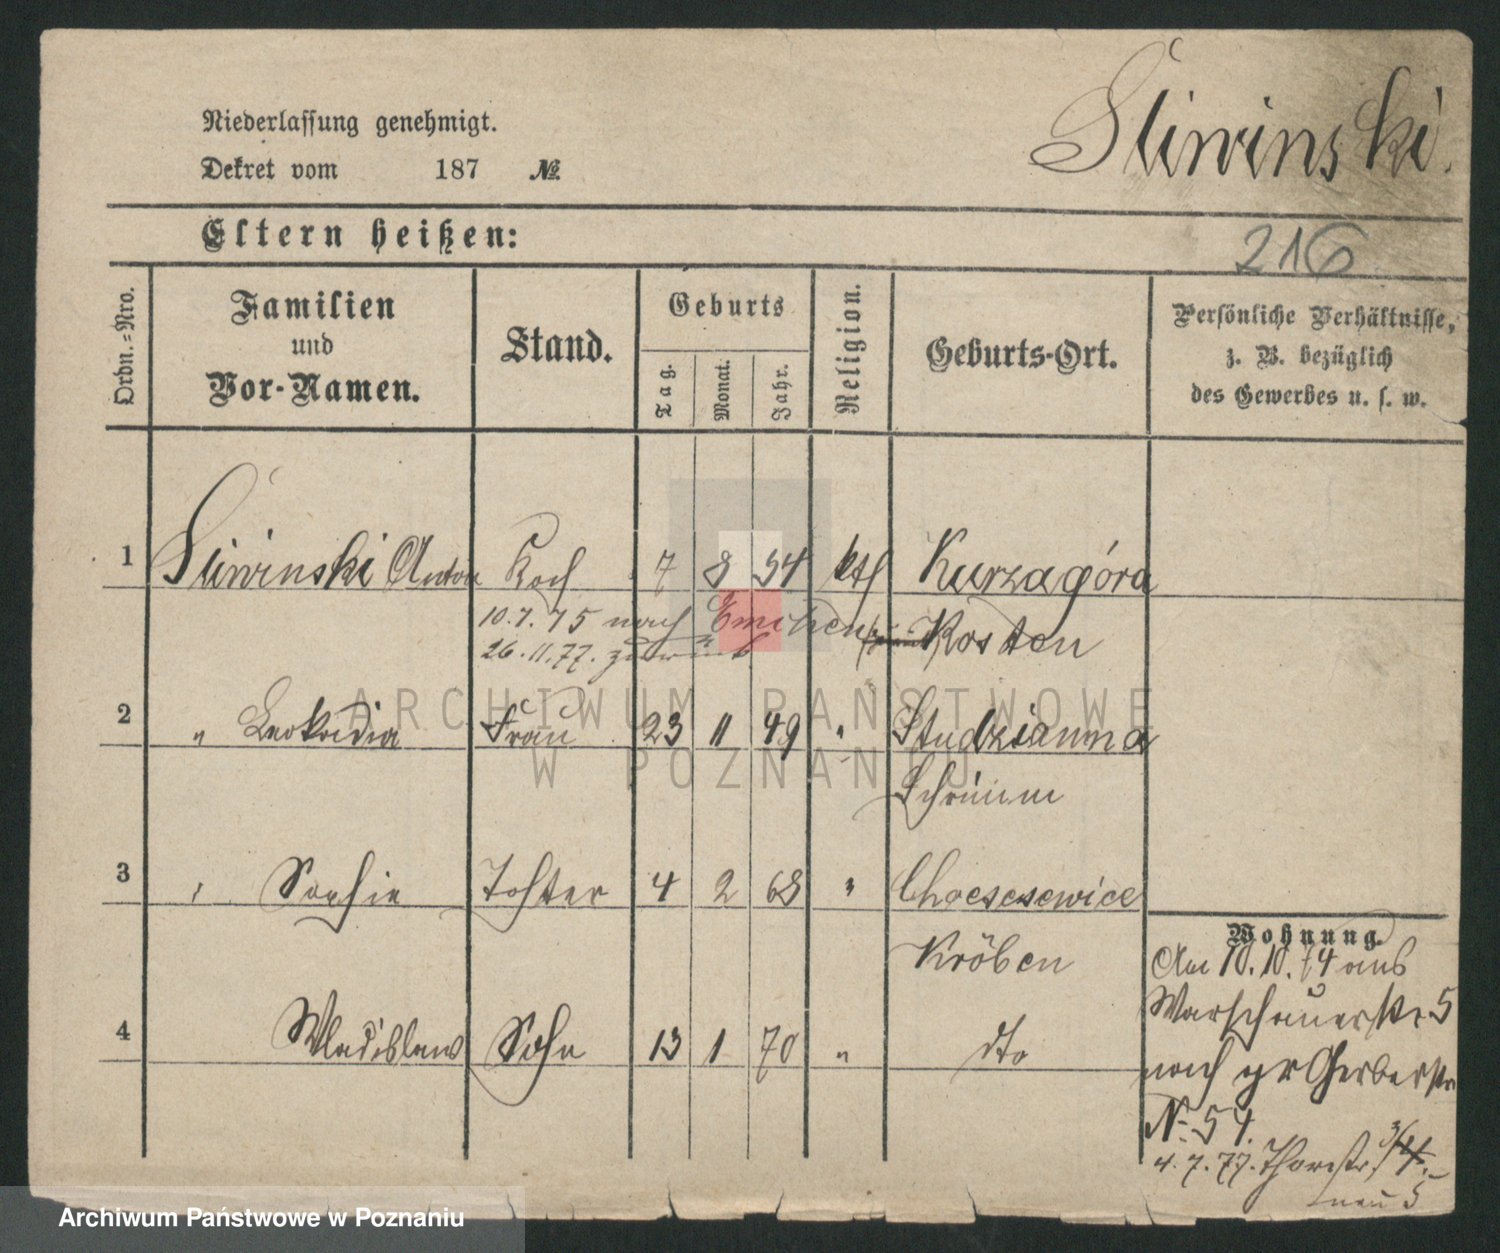 Niederlassung genehmigt.
Dekret vom 187 №
Sliwinski.
Eltern heißen:
216
Ordn.=Nro.
Familien und Vor-Namen.
Stand.
Geburts
Tag.
Monat.
Jahr.
Religion.
Geburts-Ort.
Persönliche Verhältnisse,
z. B. bezüglich
des Gewerbes u. s. w.
1 Sliwinski Anton Koch 7 8 34 kth Kurzagóra
10.7.75 nach
Kosten
26.11.77. zurück
2 " Leokadia Frau 23 11 49 " Studzianna
Schrimm
3 " Sophie Tochter 4 2 68 "
Kröben
4 Wladislaus Sohn 13 1 70 " dto
Wohnung.
Am 10.10.74 aus
Warschauerstr. 5
nach gr Gerberstr
N. 54.
4.7.77. Thorstr. 3/4.
neu 5
ARCHIWUM PAŃSTWOWE
W POZNANIU
Archiwum Państwowe w Poznaniu